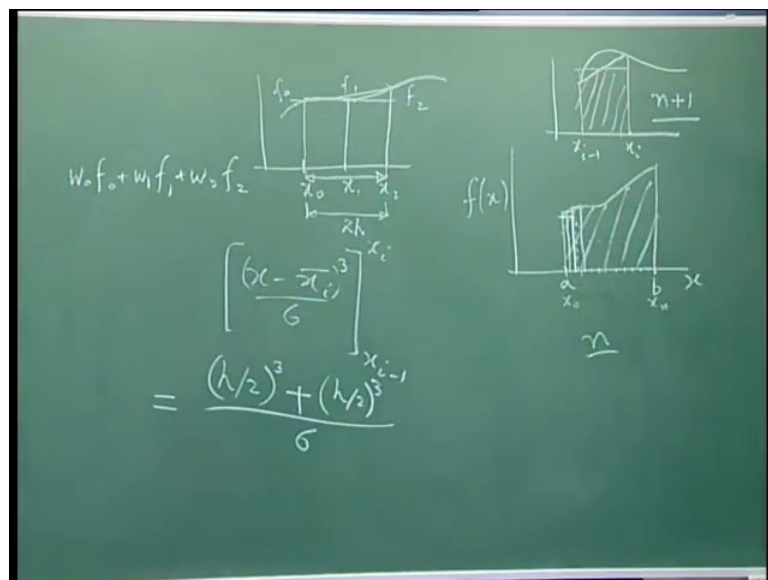 f₀ f₁ f₂
w₀f₀+w₁f₁+w₂f₂
x₀ x₁ x₂
2h
[(x - x̄ᵢ)³ / 6] xᵢ xᵢ₋₁
= ((h/2)³ + (h/2)³) / 6
n+1
xᵢ₋₁ xᵢ
f(x)
a b x
x₀ xₙ
n